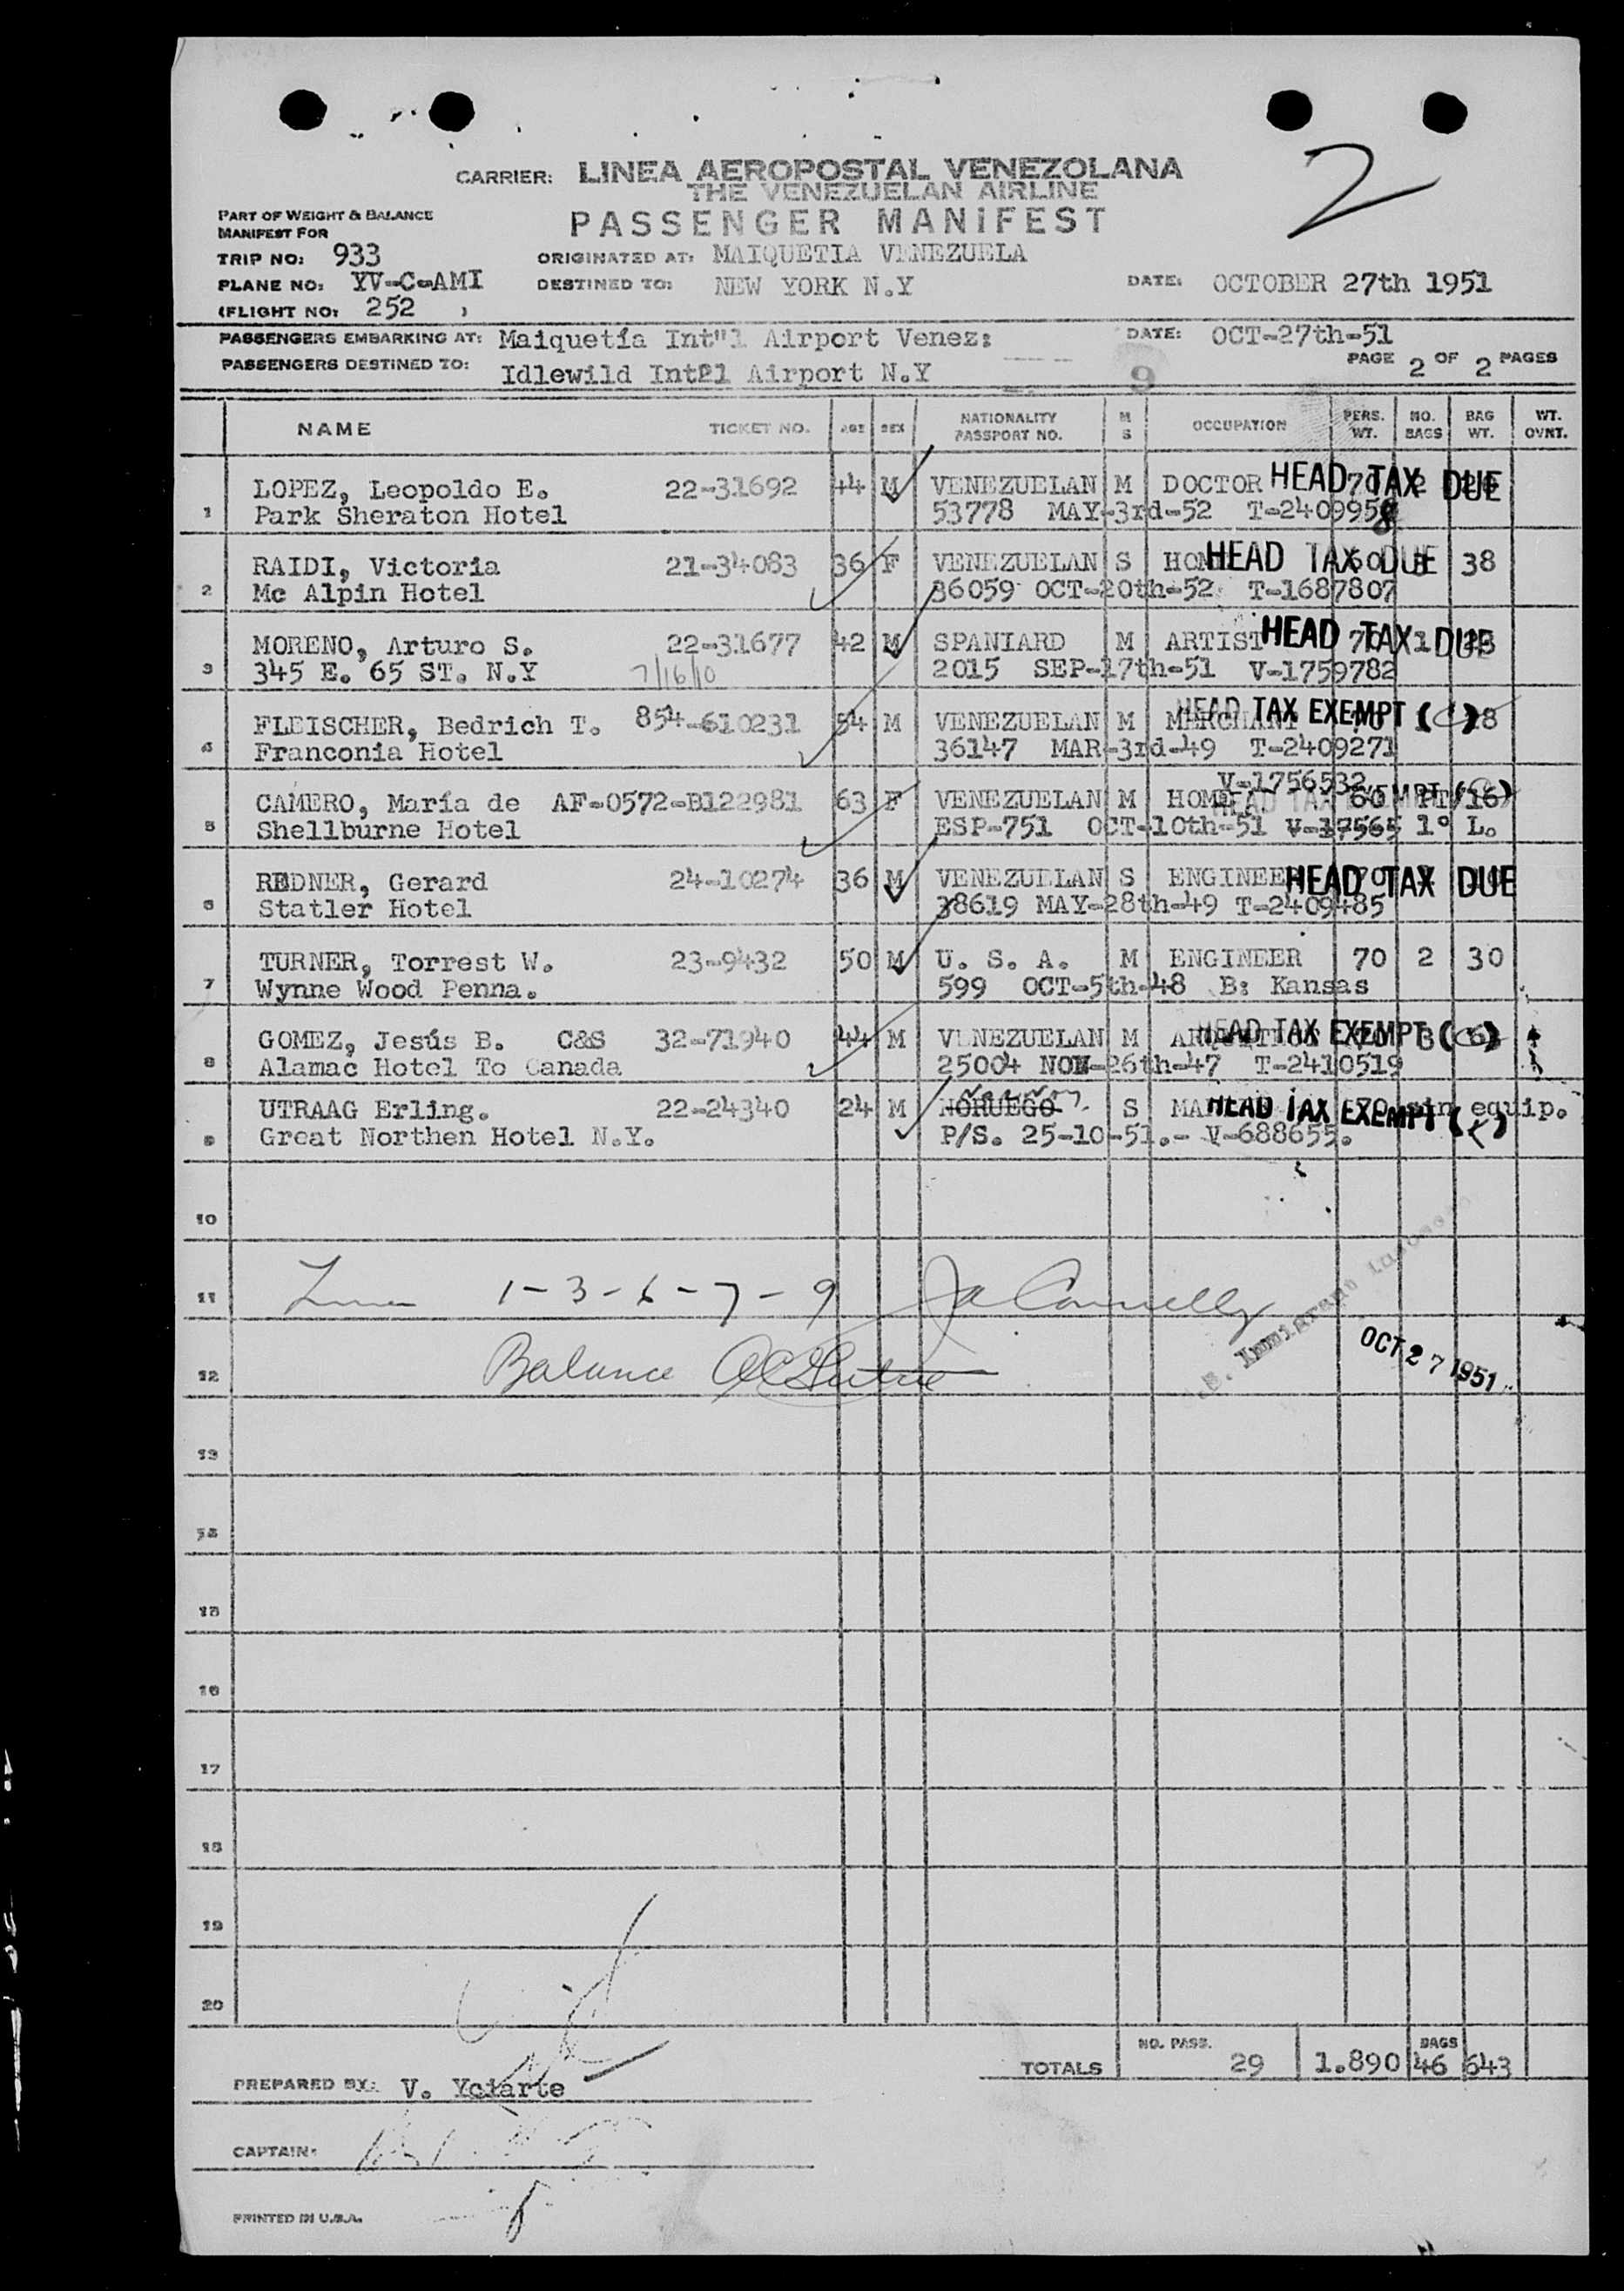 2
CARRIER: LINEA AEROPOSTAL VENEZOLANA
THE VENEZUELAN AIRLINE
PASSENGER MANIFEST
PART OF WEIGHT & BALANCE
MANIFEST FOR
TRIP NO: 933 ORIGINATED AT: MAIQUETIA VENEZUELA
PLANE NO: YV-C-AMI DESTINED TO: NEW YORK N.Y DATE: OCTOBER 27th 1951
(FLIGHT NO: 252 )
PASSENGERS EMBARKING AT: Maiquetía Int"l Airport Venez: DATE: OCT-27th-51
PAGE 2 OF 2 PAGES
PASSENGERS DESTINED TO: Idlewild Airport N.Y 9
NAME TICKET NO. AGE SEX NATIONALITY PASSPORT NO. M S OCCUPATION PERS. WT. NO. BAGS BAG WT. WT. OVNT.
LOPEZ, Leopoldo E. 22-31692 44 M VENEZUELAN M DOCTOR 70 2 HEAD TAX DUE
1 Park Sheraton Hotel 53778 MAY-3rd-52 T-2409958
RAIDI, Victoria 21-34083 36 F VENEZUELAN S HOME 60 HEAD TAX DUE 38
2 Mc Alpin Hotel 36059 OCT-20th-52 T-1687807
MORENO, Arturo S. 22-31677 42 M SPANIARD M ARTIST 70 1 HEAD TAX DUE
3 345 E. 65 ST. N.Y 7/16/10 2015 SEP-17th-51 V-1759782
FLEISCHER, Bedrich T. 854-610231 54 M VENEZUELAN M MERCHANT HEAD TAX EXEMPT (C) 18
4 Franconia Hotel 36147 MAR-3rd-49 T-2409271
V-1756532
CAMERO, María de AF-0572-B122981 63 F VENEZUELAN M HOME 60 HEAD TAX EXEMPT 16
5 Shellburne Hotel ESP-751 OCT-10th-51 V-17565 1º L.
REDNER, Gerard 24-10274 36 M VENEZUELAN S ENGINEER 70 HEAD TAX DUE
6 Statler Hotel 38619 MAY-28th-49 T-2409485
TURNER, Torrest W. 23-9432 50 M U. S. A. M ENGINEER 70 2 30
7 Wynne Wood Penna. 599 OCT-5th-48 B: Kansas
GOMEZ, Jesús B. C&S 32-71940 44 M VENEZUELAN M HEAD TAX EXEMPT (C)
8 Alamac Hotel To Canada 25004 NOV-26th-47 T-2410519
UTRAAG Erling. 22-24340 24 M NORUEGO S HEAD TAX EXEMPT 70 sin equip.
9 Great Northen Hotel N.Y. P/S. 25-10-51.- V-688655.
10
11 1-3-6-7-9 Connelly
12 Balance
OCT 27 1951
13
14
15
16
17
18
19
20
TOTALS NO. PASS. 29 1.890 BAGS 46 643
PREPARED BY: V. Yciarte
CAPTAIN:
PRINTED IN U.S.A.